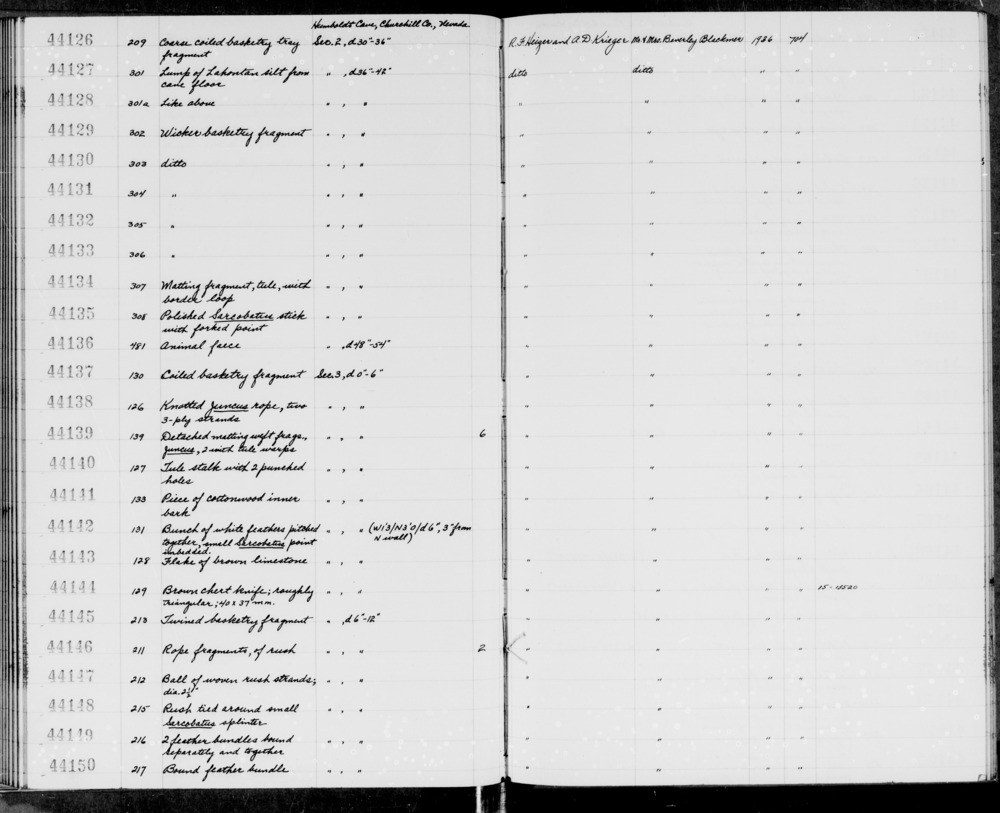 Humboldt Cave, Churchill Co., Nevada
44126 209 Coarse coiled basketry tray Sec. 2, d 30"-36" R. F. Heizer and A. D. Krieger Mr & Mrs. Beverley Blackmer 1936 704
fragment
44127 301 Lump of Lahontan silt from " , d 36"-42" ditto ditto " "
cave floor
44128 301a Like above " , " " " " "
44129 302 Wicker basketry fragment " , " " " " "
44130 303 ditto " , " " " " "
44131 304 " " , " " " " "
44132 305 " " , " " " " "
44133 306 " " , " " " " "
44134 307 Matting fragment, tule, with " , " " " " "
border loop
44135 308 Polished Sarcobatus stick " , " " " " "
with forked point
44136 481 Animal faece " , d 48"-54" " " " "
44137 130 Coiled basketry fragment Sec. 3, d 0"-6" " " " "
44138 126 Knotted Juncus rope, two " , " " " " "
3-ply strands
44139 139 Detached matting weft frags., " , " 6 " " " "
Juncus, 2 with tule warps
44140 127 Tule stalk with 2 punched " , " " " " "
holes
44141 133 Piece of cottonwood inner " , " " " " "
bark
44142 131 Bunch of white feathers pitched " , " (W13/N3'0/d6", 3" from " " " "
together, small Sarcobatus point N wall)
imbedded.
44143 128 Flake of brown limestone " , " " " " "
44144 129 Brown chert knife; roughly " , " " " " " 15-
triangular; 40 x 37 mm.
44145 213 Twined basketry fragment " , d 6"-12" " " " "
44146 211 Rope fragments, of rush " , " 2 " " " "
44147 212 Ball of woven rush strands; " , " " " " "
dia. 2½"
44148 215 Rush tied around small " , " " " " "
Sarcobatus splinter
44149 216 2 feather bundles bound " , " " " " "
separately and together
44150 217 Bound feather bundle " , " " " " "